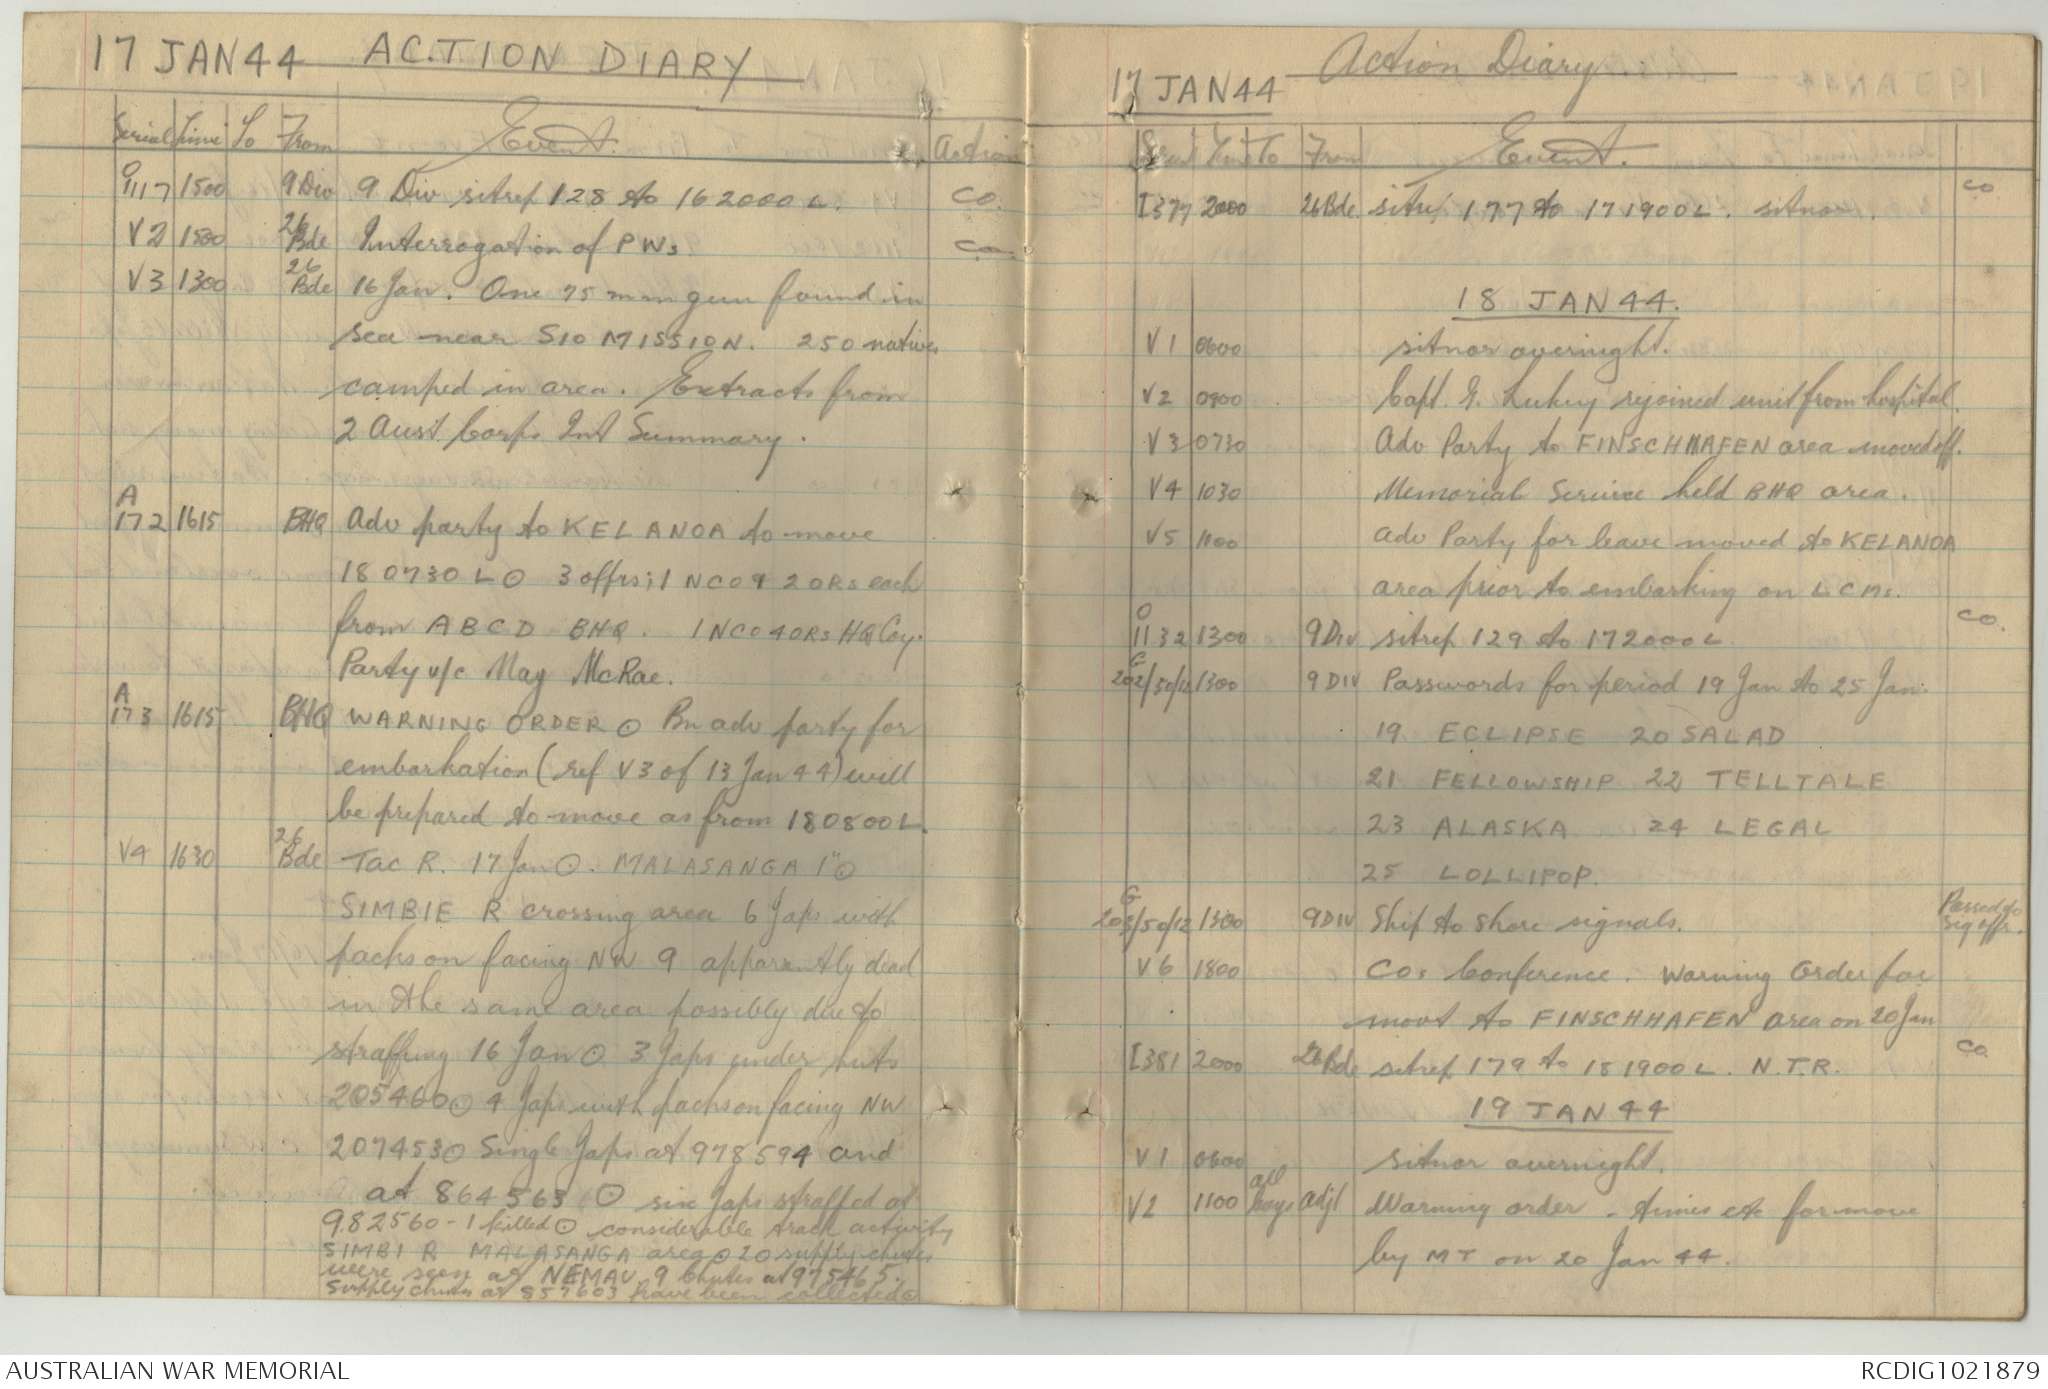 17 JAN 44 ACTION DIARY
Serial Time To From Event. Action
O
1117 1500 9 Div 9 Div sitrep 128 to 162000L. CO.
V2 1800 26 Bde Interrogation of PWs. CO.
V3 1300 26 Bde 16 Jan. One 75 mm gun found in
sea near SIO MISSION. 250 natives
camped in area. Extracts from
2 Aust Corps Int Summary.
A
172 1615 BHQ Adv party to KELANOA to move
180730L ⊙ 3 offrs; 1 NCO 9 2 ORs each
from A B C D BHQ. 1 NCO 4 ORs HQ Coy.
Party u/c Maj McRae.
A
173 1615 BHQ WARNING ORDER ⊙ Bn adv party for
embarkation (ref V3 of 13 Jan 44) will
be prepared to move as from 180800L.
V4 1630 26 Bde Tac R. 17 Jan ⊙. MALASANGA 1" ⊙
SIMBIE R crossing area 6 Japs with
packs on facing NW 9 apparently dead
in the same area possibly due to
straffing 16 Jan ⊙ 3 Japs under huts
205460 ⊙ 4 Japs with packs on facing NW
207453 ⊙ Single Japs at 978594 and
at 864563 ⊙ six Japs straffed at
982560 - 1 killed ⊙ considerable track activity
SIMBI R MALASANGA area ⊙ 20 supply chutes
were seen at NEMAU 9 Chutes at 975465.
Supply chutes at 857603 have been collected ⊙
17 JAN 44 Action Diary.
Serial Time To From Event.
I377 2000 26 Bde sitrep 177 to 171900L. sitnor. CO
18 JAN 44.
V1 0600 sitnor overnight.
V2 0900 Capt. G. Lukey rejoined unit from hospital.
V3 0730 Adv Party to FINSCHHAFEN area moved off.
V4 1030 Memorial Service held BHQ area.
V5 1100 Adv Party for leave moved to KELANOA
area prior to embarking on LCMs.
O
1132 1300 9 Div sitrep 129 to 172000L. CO.
G
202/50/12 1300 9 DIV Passwords for period 19 Jan to 25 Jan.
19 ECLIPSE 20 SALAD
21 FELLOWSHIP 22 TELLTALE
23 ALASKA 24 LEGAL
25 LOLLIPOP.
G
203/50/12 1300 9 DIV Ship to Shore signals. Passed to Sig Offr.
V6 1800 COs Conference. Warning Order for
movt to FINSCHHAFEN area on 20 Jan
I381 2000 26 Bde sitrep 179 to 181900L. N.T.R. CO.
19 JAN 44
V1 0600 sitnor overnight.
V2 1100 all Coys Adjt Warning order - times etc for move
by MT on 20 Jan 44.
AUSTRALIAN WAR MEMORIAL RCDIG1021879